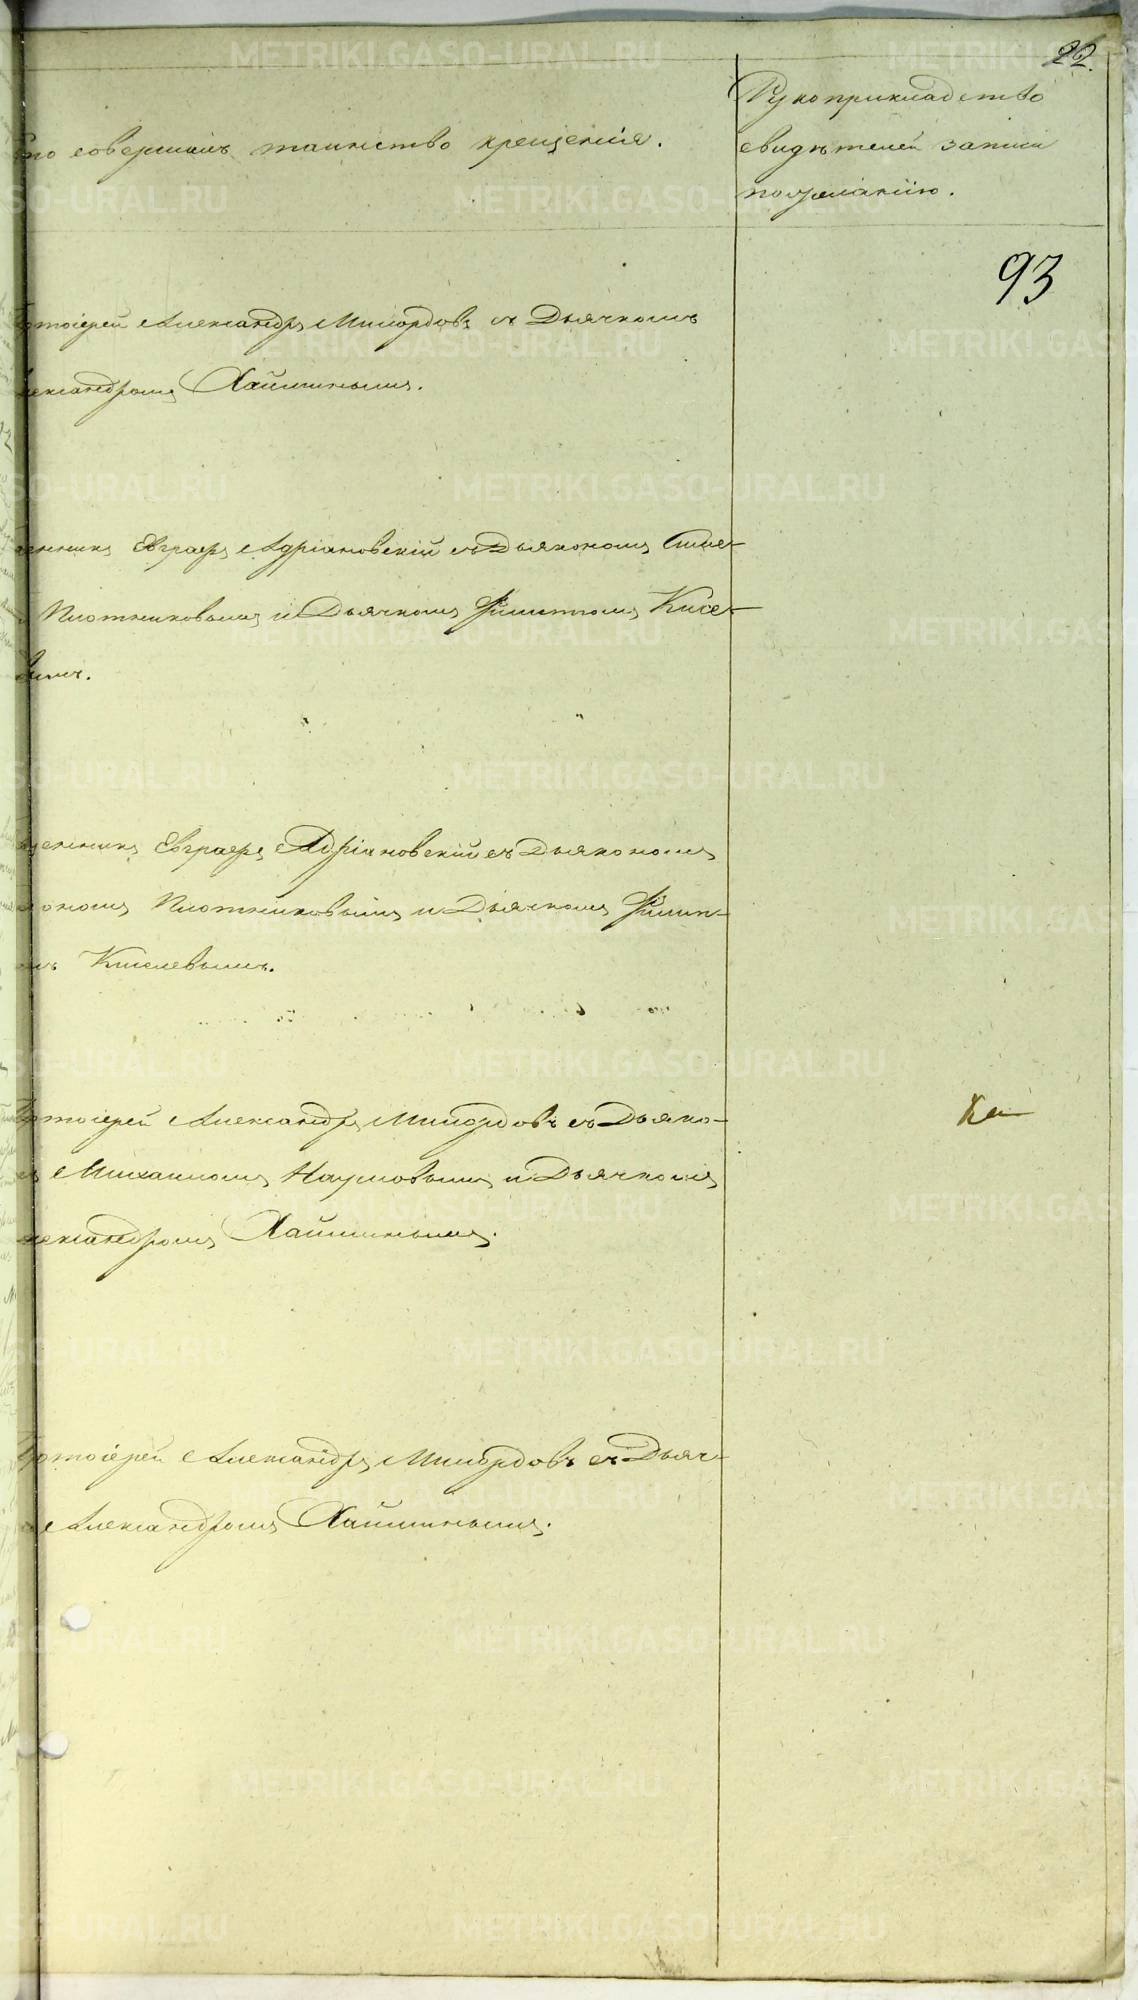 22.
Рукоприкладство
то совершалъ таинство крещенія.
свидѣтелей записи
по желанію.
93
тоіерей Александръ Милордовъ съ Дьячкомъ
лександромъ Хайминымъ.
енникъ Евграфъ Адріановскій съ Дьякономъ Симе-
Плотниковымъ и Дьячкомъ Филиппомъ Кисе-
вымъ.
щенникъ Евграфъ Адріановскій съ Дьякономъ
ономъ Плотниковымъ и Дьячкомъ Филип-
омъ Киселевымъ.
ротоіерей Александръ Милордовъ съ Дьяко-
Ка
Михаиломъ Наумовымъ и Дьячкомъ
лександромъ Хайминымъ.
ротоіерей Александръ Милордовъ съ Дьяч-
Александромъ Хайминымъ.
METRIKI.GASO-URAL.RU